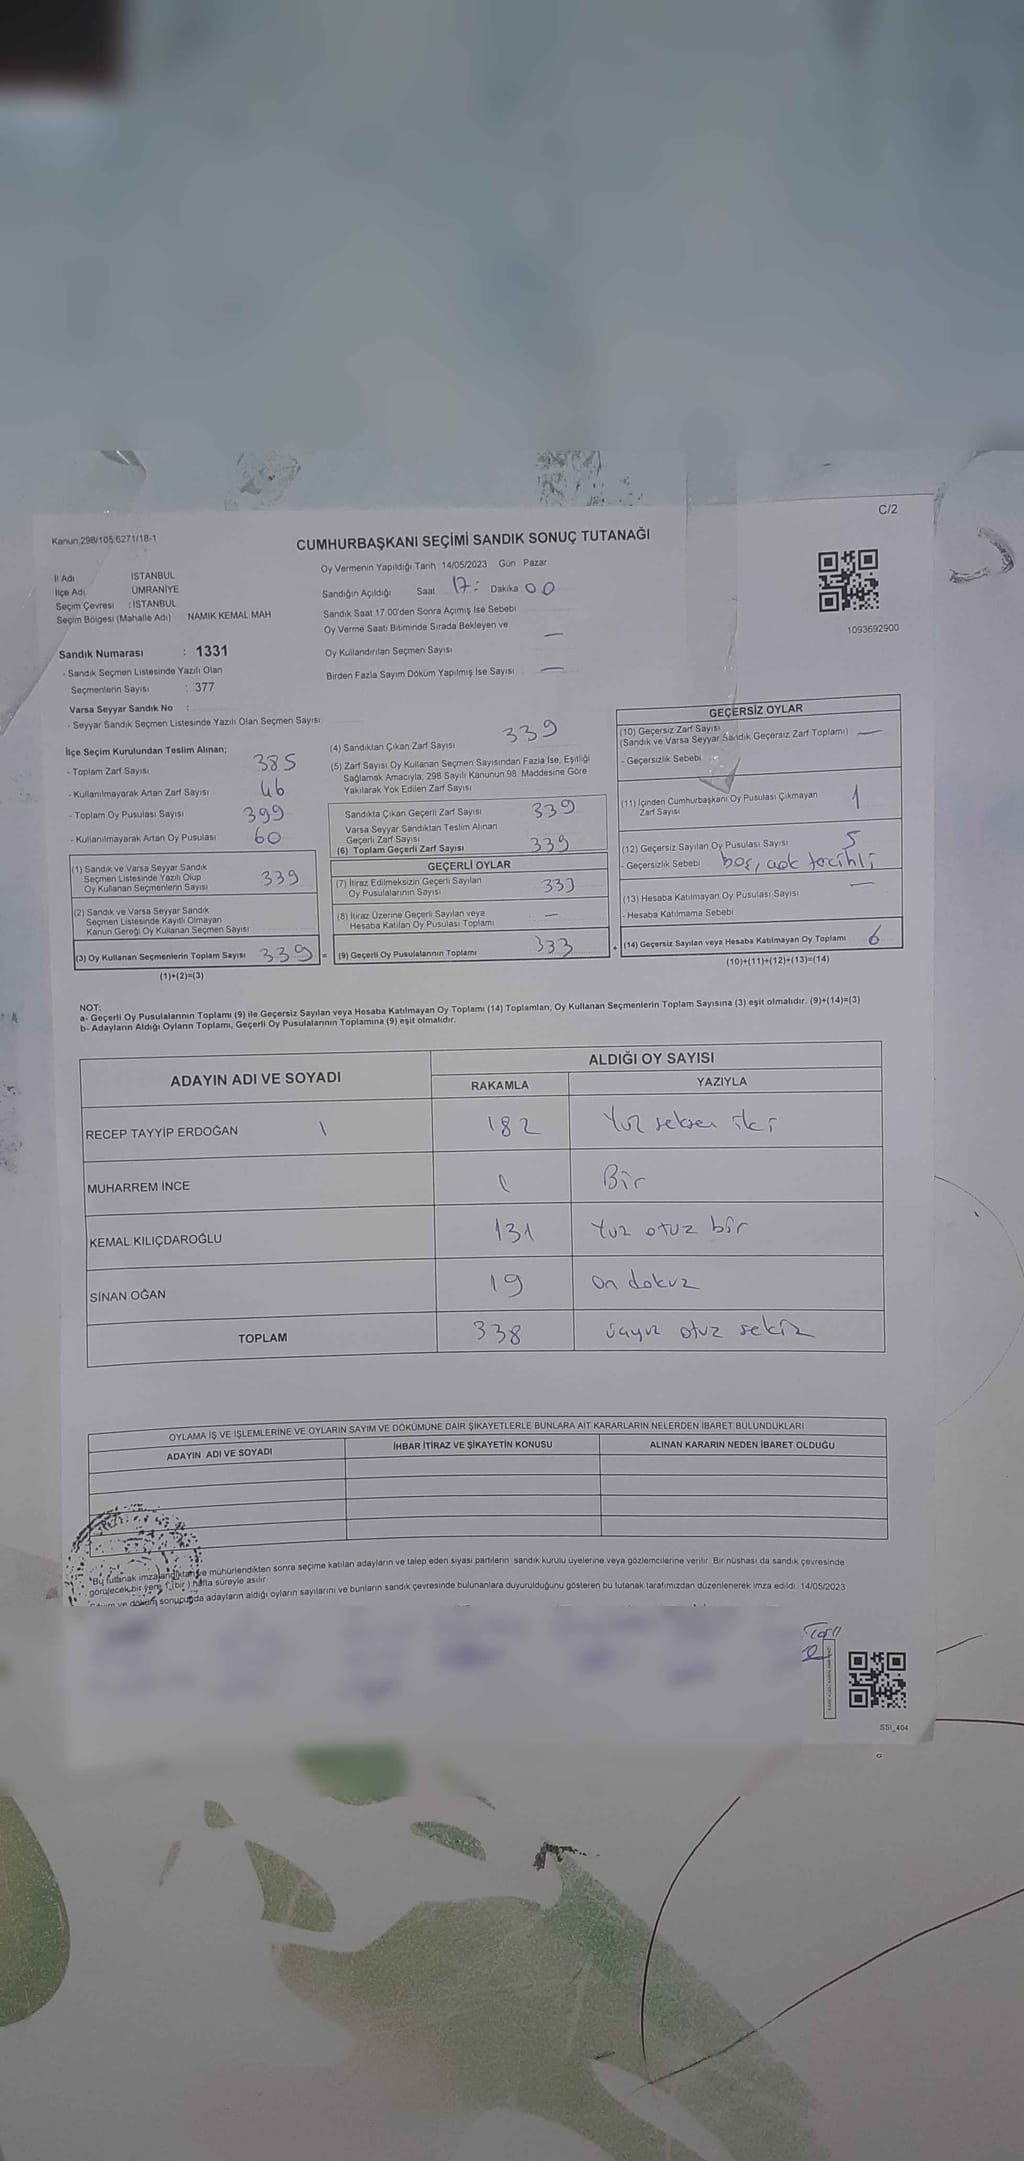 C/2
Kanun 298/105,6271/18-1
CUMHURBAŞKANI SEÇİMİ SANDIK SONUÇ TUTANAĞI
İl Adı İSTANBUL
İlçe Adı ÜMRANİYE
Seçim Çevresi : İSTANBUL
Seçim Bölgesi (Mahalle Adı) NAMIK KEMAL MAH
Sandık Numarası : 1331
- Sandık Seçmen Listesinde Yazılı Olan
Seçmenlerin Sayısı : 377
Varsa Seyyar Sandık No :
- Seyyar Sandık Seçmen Listesinde Yazılı Olan Seçmen Sayısı
Oy Vermenin Yapıldığı Tarih 14/05/2023 Gün Pazar
Sandığın Açıldığı Saat 17: Dakika 00
Sandık Saat 17.00'den Sonra Açımış İse Sebebi
Oy Verme Saati Bitiminde Sırada Bekleyen ve
Oy Kullandırılan Seçmen Sayısı —
Birden Fazla Sayım Döküm Yapılmış İse Sayısı —
1093692900
İlçe Seçim Kurulundan Teslim Alınan;
- Toplam Zarf Sayısı 385
- Kullanılmayarak Artan Zarf Sayısı 46
- Toplam Oy Pusulası Sayısı 399
- Kullanılmayarak Artan Oy Pusulası 60
(1) Sandık ve Varsa Seyyar Sandık
Seçmen Listesinde Yazılı Olup
Oy Kullanan Seçmenlerin Sayısı 339
(2) Sandık ve Varsa Seyyar Sandık
Seçmen Listesinde Kayıtlı Olmayan
Kanun Gereği Oy Kullanan Seçmen Sayısı
(3) Oy Kullanan Seçmenlerin Toplam Sayısı 339 =
(1)+(2)=(3)
(4) Sandıktan Çıkan Zarf Sayısı 339
(5) Zarf Sayısı Oy Kullanan Seçmen Sayısından Fazla İse, Eşitliği
Sağlamak Amacıyla, 298 Sayılı Kanunun 98. Maddesine Göre
Yakılarak Yok Edilen Zarf Sayısı
Sandıkta Çıkan Geçerli Zarf Sayısı 339
Varsa Seyyar Sandıktan Teslim Alınan
Geçerli Zarf Sayısı
(6) Toplam Geçerli Zarf Sayısı 339
GEÇERLİ OYLAR
(7) İtiraz Edilmeksizin Geçerli Sayılan
Oy Pusulalarının Sayısı 333
(8) İtiraz Üzerine Geçerli Sayılan veya
Hesaba Katılan Oy Pusulası Toplamı —
(9) Geçerli Oy Pusulalarının Toplamı 333 +
GEÇERSİZ OYLAR
(10) Geçersiz Zarf Sayısı
(Sandık ve Varsa Seyyar Sandık Geçersiz Zarf Toplamı) —
- Geçersizlik Sebebi
(11) İçinden Cumhurbaşkanı Oy Pusulası Çıkmayan
Zarf Sayısı 1
(12) Geçersiz Sayılan Oy Pusulası Sayısı 5
- Geçersizlik Sebebi boş, tercihli
(13) Hesaba Katılmayan Oy Pusulası Sayısı —
- Hesaba Katılmama Sebebi
(14) Geçersiz Sayılan veya Hesaba Katılmayan Oy Toplamı 6
(10)+(11)+(12)+(13)=(14)
NOT:
a- Geçerli Oy Pusulalarının Toplamı (9) ile Geçersiz Sayılan veya Hesaba Katılmayan Oy Toplamı (14) Toplamları, Oy Kullanan Seçmenlerin Toplam Sayısına (3) eşit olmalıdır. (9)+(14)=(3)
b- Adayların Aldığı Oyların Toplamı, Geçerli Oy Pusulalarının Toplamına (9) eşit olmalıdır.
ADAYIN ADI VE SOYADI
ALDIĞI OY SAYISI
RAKAMLA YAZIYLA
RECEP TAYYİP ERDOĞAN 182 Yüz seksen iki
MUHARREM İNCE 1 Bir
KEMAL KILIÇDAROĞLU 131 Yüz otuz bir
SİNAN OĞAN 19 on dokuz
TOPLAM 338 üçyüz otuz sekiz
OYLAMA İŞ VE İŞLEMLERİNE VE OYLARIN SAYIM VE DÖKÜMÜNE DAİR ŞİKAYETLERLE BUNLARA AİT KARARLARIN NELERDEN İBARET BULUNDUKLARI
ADAYIN ADI VE SOYADI İHBAR İTİRAZ VE ŞİKAYETİN KONUSU ALINAN KARARIN NEDEN İBARET OLDUĞU
"Bu tutanak imzalandıktan ve mühürlendikten sonra seçime katılan adayların ve talep eden siyasi partilerin sandık kurulu üyelerine veya gözlemcilerine verilir. Bir nüshası da sandık çevresinde
görülecek bir yere 1 (bir) hafta süreyle asılır.
ve döküm sonucunda adayların aldığı oyların sayılarını ve bunların sandık çevresinde bulunanlara duyurulduğunu gösteren bu tutanak tarafımızdan düzenlenerek imza edildi. 14/05/2023
SSI_404